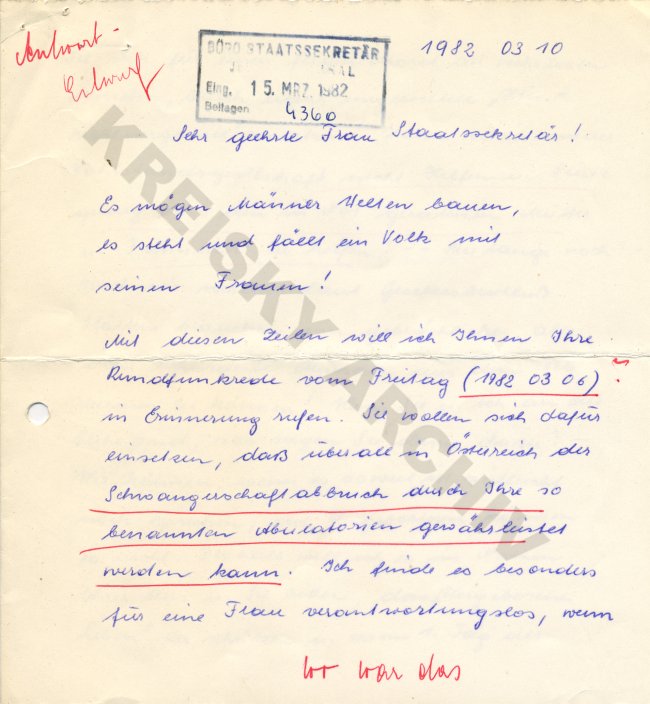 Antwort-
Entwurf
BÜRO STAATSSEKRETÄR
Eing. 15. MRZ. 1982
Beilagen 4360
1982 03 10
Sehr geehrte Frau Staatssekretär!
Es mögen Männer Welten bauen,
es steht und fällt ein Volk mit
seinen Frauen!
Mit diesen Zeilen will ich Ihnen Ihre
Rundfunkrede vom Freitag (1982 03 06) ?
in Erinnerung rufen. Sie wollen sich dafür
einsetzen, daß überall in Österreich der
Schwangerschaftabbruch durch Ihre so
benannten Abulatorien gewährleistet
werden kann. Ich finde es besonders
für eine Frau verantwortungslos, wenn
wo war das
KREISKY ARCHIV